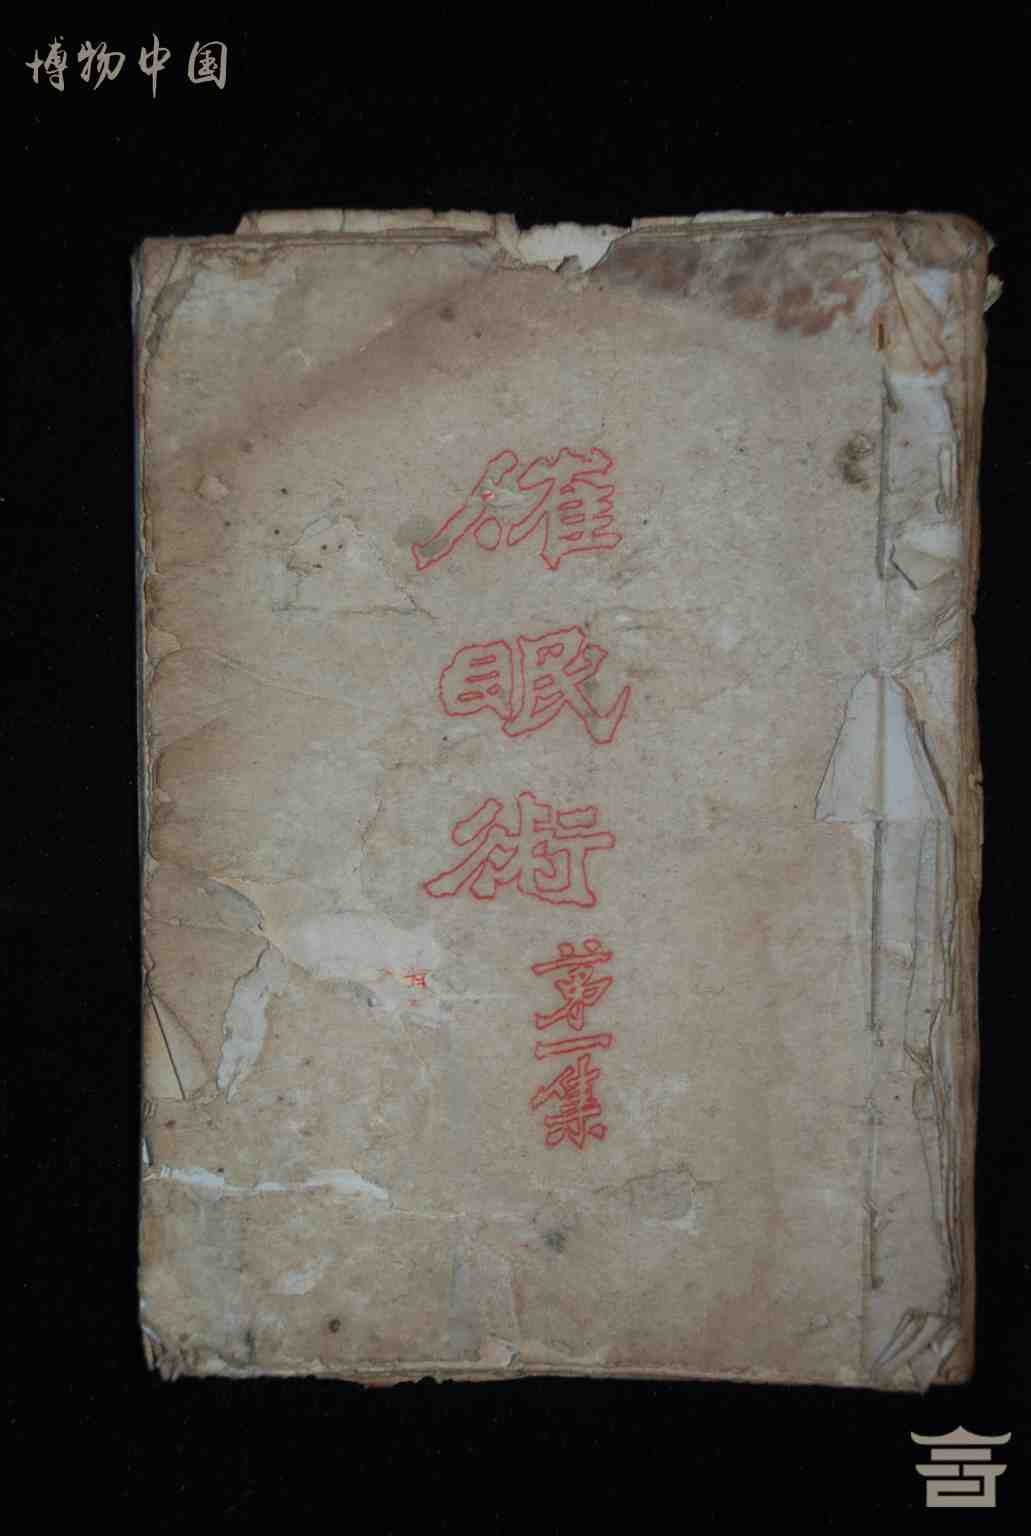 博物中国
催眠術
第一集